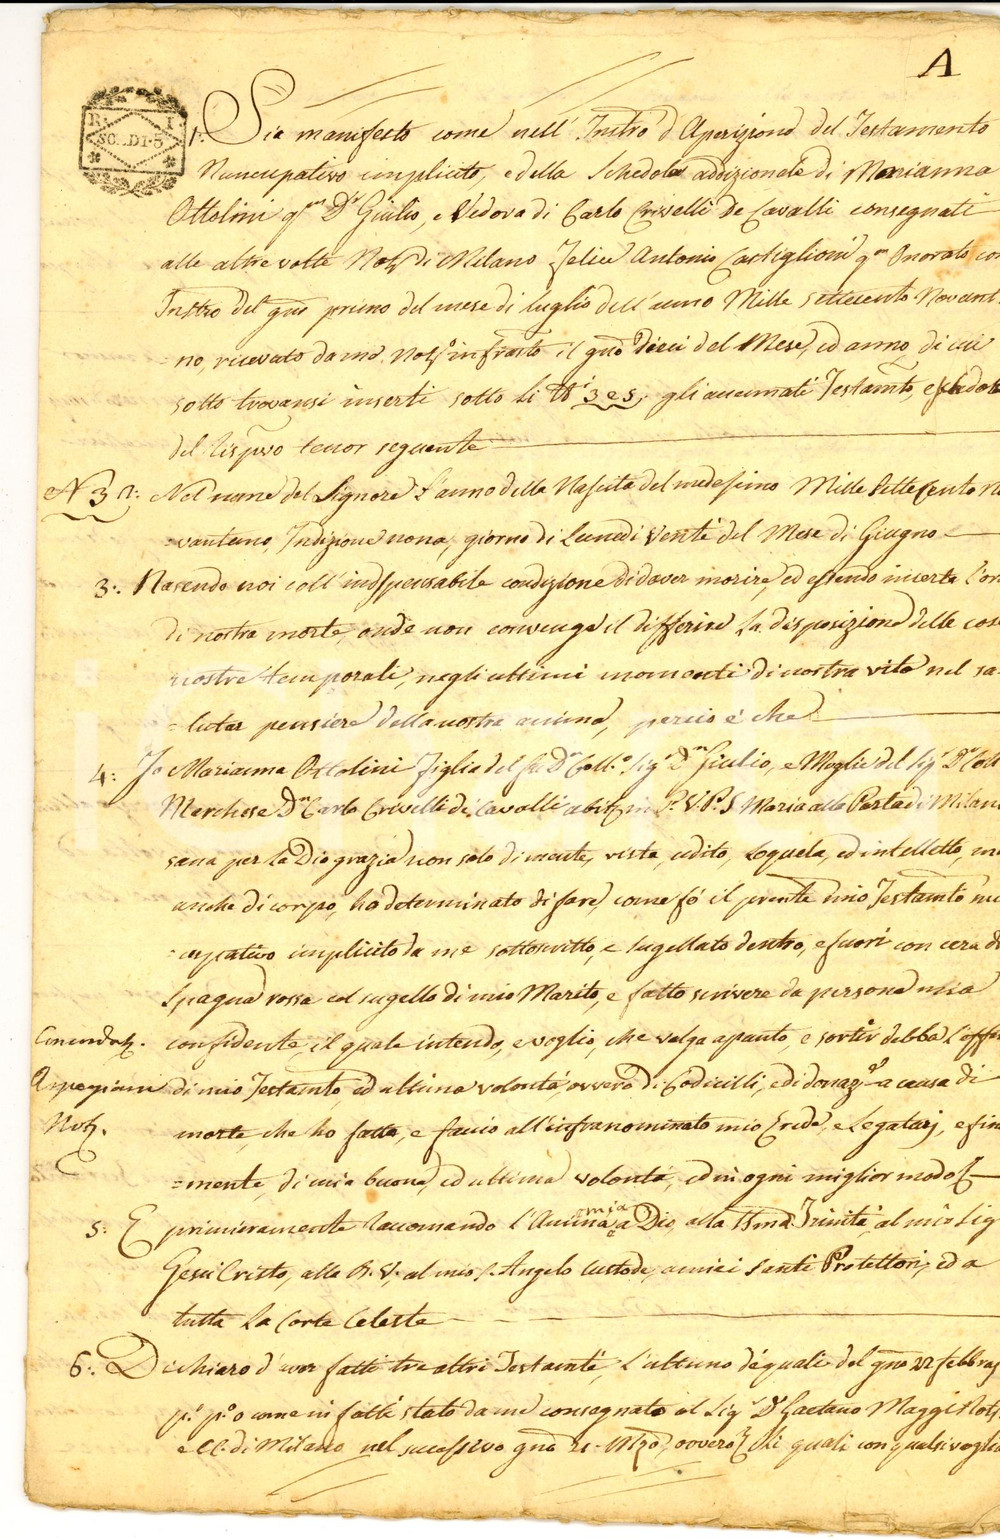 A
R. I.
SOLDI 5
1: Sia manifesto come nell' Instro d'Aperizione del Testamento
Nuncupativo implicito, e della Schedola addizionale di Marianna
Ottolini qm Dr Giulio, e Vedova di Carlo Crivelli De Cavalli consegnati
alle altre volte Notz di Milano Felice Antonio Castiglioni qm Onorato con
Instro del gno primo del mese di luglio dell'anno Mille settecento Novant
=no, ricevuto da me Notzo infrastto il gno dieci del Mese, ed anno, di cui
sotto trovansi inserti sotto li Ni 3 e 5, gli accennati Testamto, e schedola
del rispvo tenor seguente
N 3 2: Nel nome del Signore l'anno della Nascita del medesimo Mille settecento No
=vantuno, Indizione nona, giorno di Lunedi Venti del Mese di Giugno
3: Nascendo noi coll'indispensabile condizione di dover morire, ed essendo incerta l'ora
di nostra morte, onde non convenga il differire la disposizione delle cose
nostre temporali, negli ultimi momenti di nostra vita nel sa=
=lutar pensiere della nostra anima, percio è che
4: Io Marianna Ottolini Figlia del fu Dn Coll.o Sigr Dn Giulio, e Moglie del Sigr Dn Coll
Marchese Dn Carlo Crivelli di Cavalli abitz in P. V. Ps S Maria alla Porta di Milano
sana per la Dio grazia non solo di mente, vista, udito, loquela, ed intelletto, ma
anche di corpo, ho determinato di fare, come fò il presente mio Testamto nun
=cupativo implicito da me sottoscritto, e sugellato dentro, e fuori con cera di
Spagna rossa col sugello di mio Marito, e fatto scrivere da persona mia
confidente, il quale intendo, e voglio, che valga apunto, e sortir debba l'effet
di mio Testamto, ed ultima volontà, ovvero di Codicilli, e di donazne a causa di
morte, che ho fatta, e faccio all'infranominato mio Erede, e Legatarj, e final
=mente, di mia buona, ed ultima volontà, ed in ogni miglior modo
Notz.
5: E primieramente raccomando l'Anima mia a Dio, alla SSma Trinità, al mio Sigr
Gesù Cristo, alla B. V. al mio S. Angelo Custode, a miei Santi Protettori, ed a
tutta la Corte Celeste
6: Dichiaro d'aver fatti tre altri Testamti, l'ultimo de quali del gno 22 febbraj
po po o come in fatti stato da me consegnato al Sigr Dr Gaetano Maggi Notz
e CC. di Milano nel successivo gno 21 Mzo, ovvero li quali con qualsivoglia